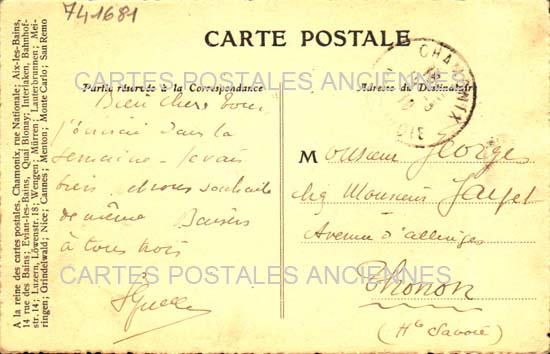 741681
CARTE POSTALE
CHAMONIX
Partie réservée à la Correspondance
Adresse du Destinataire
CARTES POSTALES ANCIENNES
Bien chers tous,
dans la
semaine - Je vais
bien & vous souhaite
de même Baisers
à tous trois
Monsieur Georges
chez Monsieur
Avenue d'allinges
CARTES POSTALES ANCIENNES
Thonon
(Hte Savoie)
A la reine des cartes postales, Chamonix, rue Nationale; Aix-les-Bains,
14 rue des Bains; Evian-les-Bains, Quai Blonay; Interlaken, Bahnhof-
str. 14; Luzern, Löwenstr. 18; Wengen; Mürren; Lauterbrunnen; Mei-
ringen; Grindelwald; Nice; Cannes; Menton; Monte Carlo; San Remo